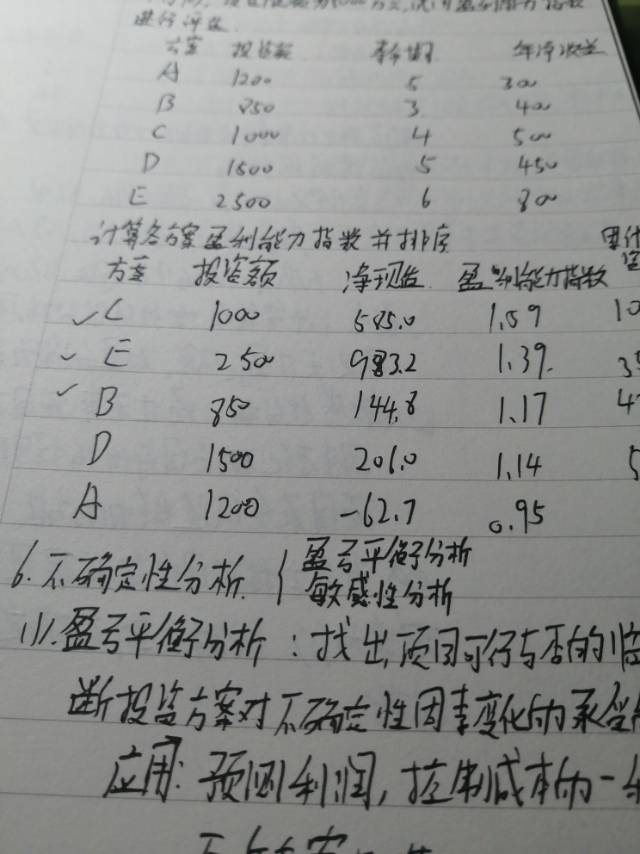 进行评估.
方案 投资额 寿命期 年净收益
A 1200 5 300
B 850 3 400
C 1000 4 500
D 1500 5 450
E 2500 6 800
计算各方案盈利能力指数并排序
方案 投资额 净现值 盈利能力指数
✓ C 1000 585.0 1.59 10
✓ E 2500 983.2 1.39 35
✓ B 850 144.8 1.17 4
D 1500 206.0 1.14 5
A 1200 -62.7 0.95
6. 不确定性分析 { 盈亏平衡分析
敏感性分析
(1). 盈亏平衡分析: 找出项目可行与否的临
断投资方案对不确定性因素变化的承受
应用: 预测利润, 控制成本的一